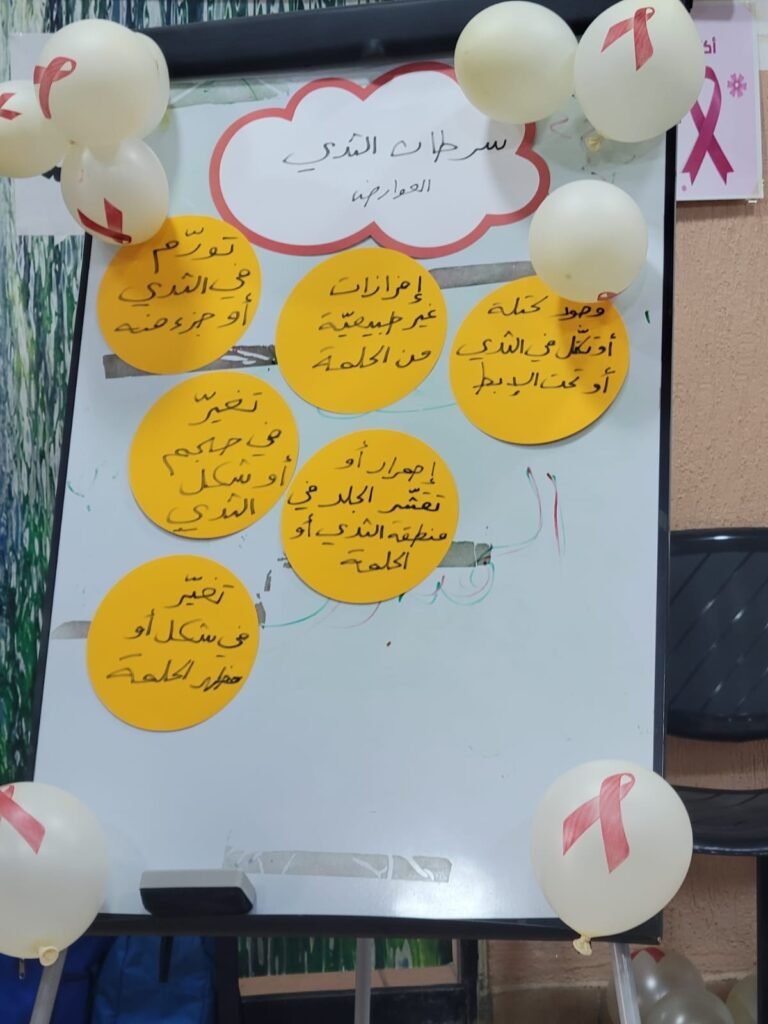 سرطان الثدي
العوارض
وجود كتلة
أو تكتّل في الثدي
أو تحت الإبط
إفرازات
غير طبيعيّة
من الحلمة
تورّم
في الثدي
أو جزء منه
إحمرار أو
تقشّر الجلد في
منطقة الثدي أو
الحلمة
تغيّر
في حجم
أو شكل
الثدي
تغيّر
في شكل أو
مظهر الحلمة